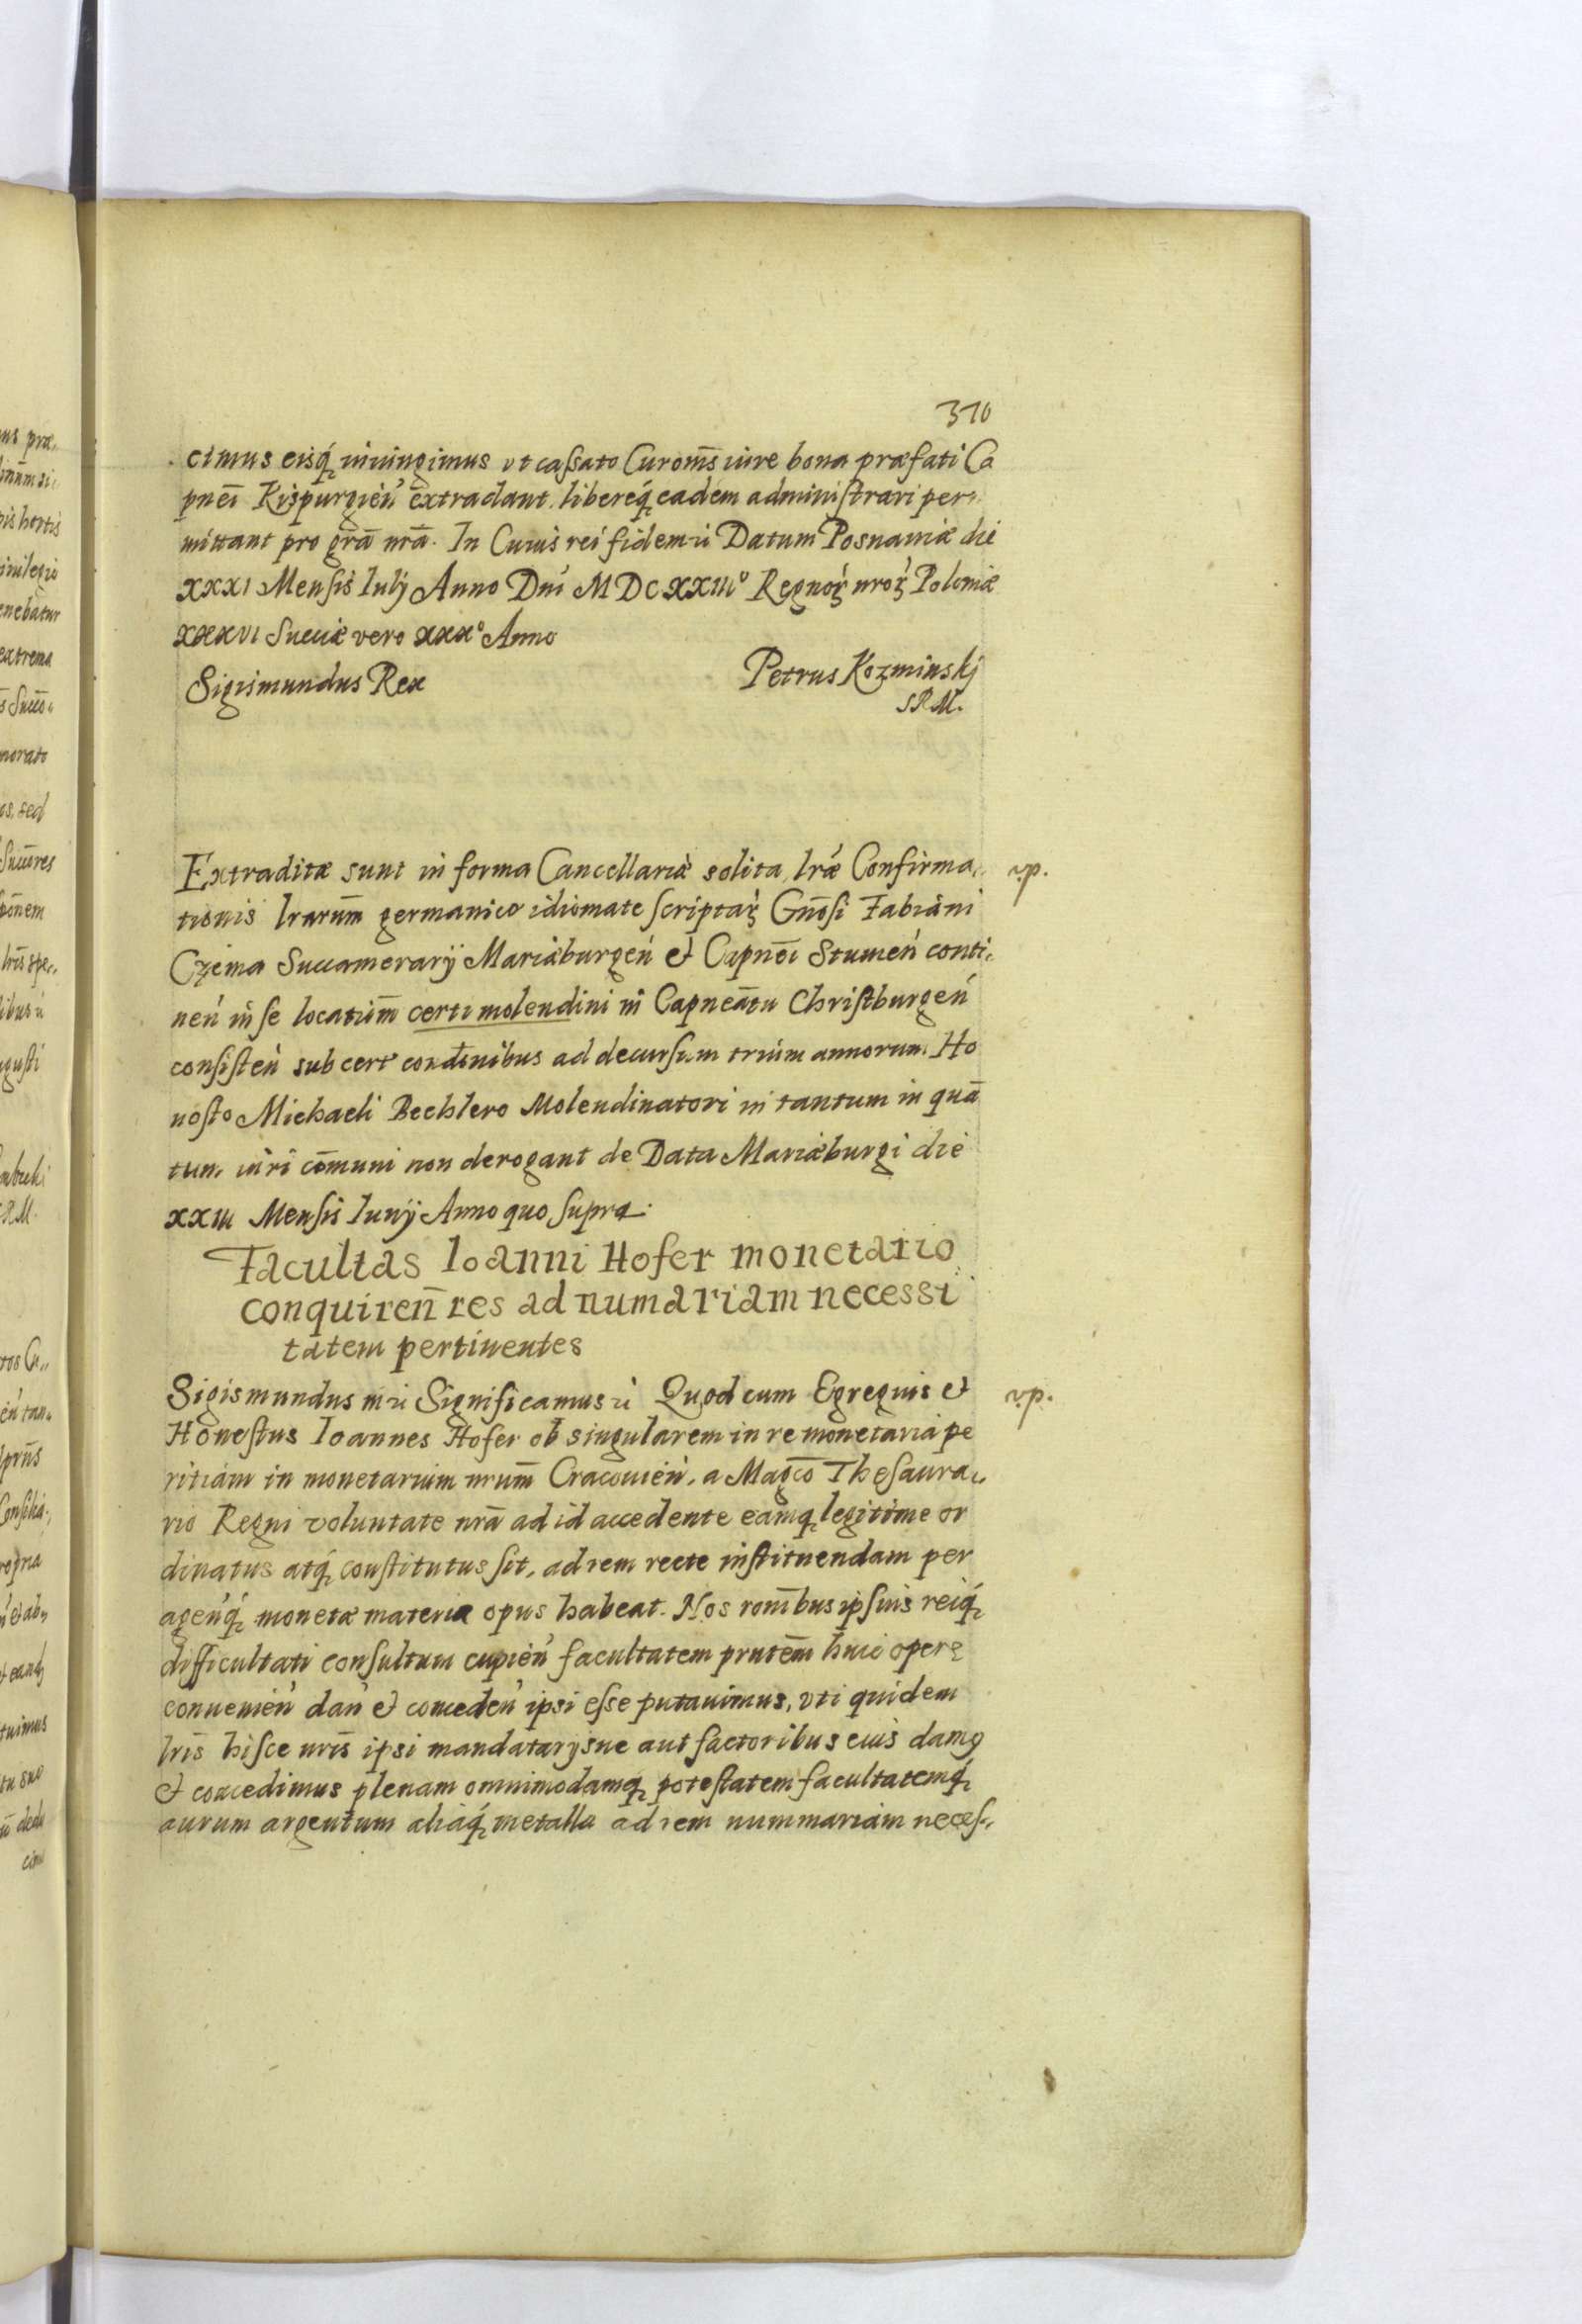 310
cimus eisq́ iniungimus vt caſsato Curom̄s iure bona præfati Ca
pnei Kiṡpurgień extradant. libereq́ eadem adminiſtrari per
mittant pro grā nrā. In Cuius rei fidem ıı Datum Posnaniæ die
XXXI Menſis Iulÿ Anno Dni MDCXXIIIº Regnoꝝ nroꝝ Poloniæ
XXXVI Sueciæ vero XXXº Anno
Sigismundus Rex
Petrus Kozminskj
SRM.
Extraditæ sunt in forma Cancellariæ solita lræ Confirma,,
v.p.
tionis lrarum̄ germanico idiomate ſcriptaꝝ Gnōſi Fabiani
Czema Succamerarÿ Mariæburgeń et Capnēi Stumeń conti,,
neń in ſe locatium̄ certi molendini in Capneātu Chriſtburgeń
conſiſteń sub cert condōnibus ad decurſum trium annorum Ho
noſto Michaeli Bechlero Molendinatori in tantum in quā
tum iuri cōmuni non derogant de Data Mariæburgi die
XXIII Menſis Iunÿ Anno quo ſupra.
Facultas Ioanni Hofer monetario
conquiren̄ res ad numariam necessi
tatem pertinentes
Sigismundus III ıı Significamus ıı Quod cum Egregius et
v.p.
Honeſtus Ioannes Hofer ob singularem in re monetaria pe
ritiam in monetarium nrum̄ Cracouień. a Magcō Theſaura,,
rio Regni voluntate nrā ad id accedente eamq́ legitime or
dinatus atq́ conſtitutus ſit, ad rem recte inſtituendam per
ageńq́ monetæ materia opus habeat. Nos rom̄bus ipſius reiq́
difficultati conſultum cupień facultatem prntēm huic opere
conuenień dań et concedeń ipsi eſse putauimus, vti quidem
lrīs hiſce nrīs ipsi mandatarÿsue aut factoribus eius damꝰ
et concedimus plenam omnimodamq́ poteſtatem facultatemq́
aurum argentum aliaq́ metalla ad rem nummariam neceſ,,